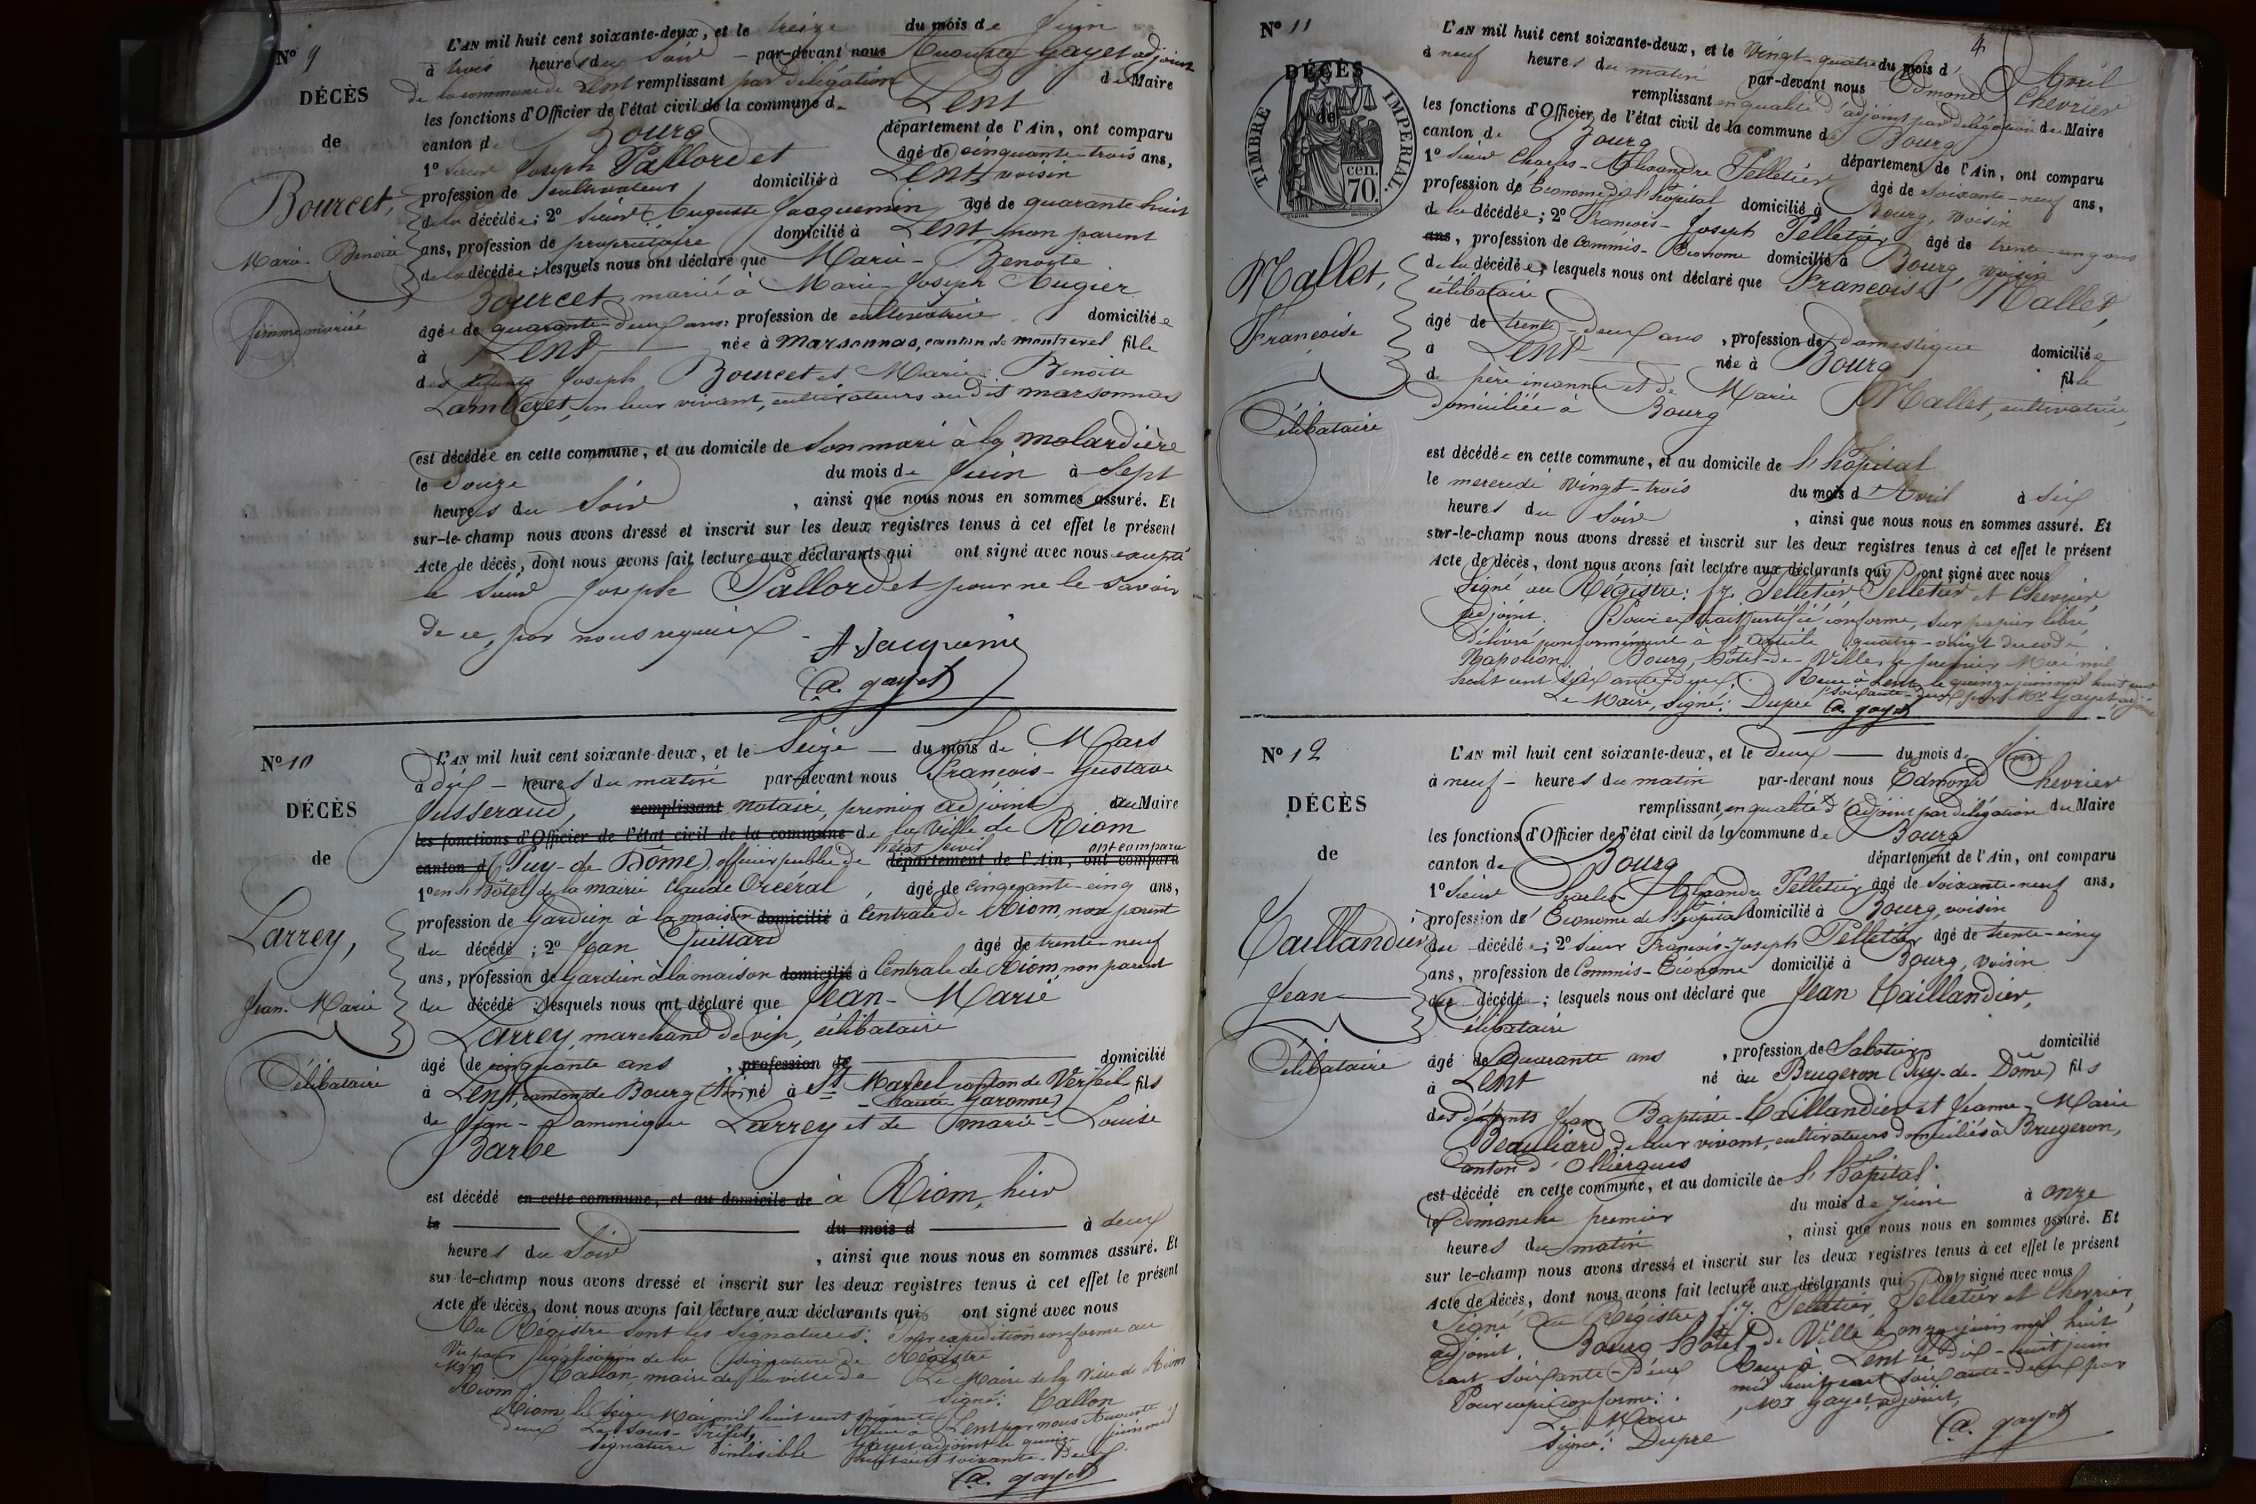 Nº 9
DÉCÈS
de
Bourcet,
Marie-Benoite
femme mariée
L'AN mil huit cent soixante-deux, et le treize du mois de Juin
à trois heures du soir par-devant nous Auguste Gayet adjoint
de la commune de Lent remplissant par délégation de Maire
les fonctions d'Officier de l'état civil de la commune de Lent
canton de Bourg département de l'Ain, ont comparu
1º Sieur Joseph Pallordet âgé de cinquante-trois ans,
profession de cultivateur, domicilié à Lent, voisin
de la décédée; 2º Sieur Auguste Jacquemin âgé de quarante huit
ans, profession de propriétaire domicilié à Lent, non parent
de la décédée; lesquels nous ont déclaré que Marie-Benoite
Bourcet, mariée à Marie-Joseph Augier
âgée de quarante-deux ans, profession de cultivatrice domiciliée
à Lent née à Marsonnas, canton de Montrevel fille
des défunts Joseph Bourcet et Marie-Benoite
Lamberet, en leur vivant, cultivateurs audit Marsonnas
est décédée en cette commune, et au domicile de son mari à la Molardière
le Douze du mois de Juin à Sept
heures du Soir, ainsi que nous nous en sommes assuré. Et
sur-le-champ nous avons dressé et inscrit sur les deux registres tenus à cet effet le présent
Acte de décès, dont nous avons fait lecture aux déclarants qui ont signé avec nous excepté
le Sieur Joseph Pallordet pour ne le savoir
de ce, par nous requis
A. Jacquemin
A. gayet
Nº 10
DÉCÈS
de
Larrey,
Jean-Marie
Célibataire
L'AN mil huit cent soixante-deux, et le Seize du mois de Mars
à dix heures du matin par-devant nous François-Gustave
Jusseraud, remplissant notaire, premier adjoint au Maire
les fonctions d'Officier de l'état civil de la commune de la Ville de Riom
canton d (Puy-de-Dôme), officier public de l'état civil département de l'Ain, ont comparu ont comparu
1º en l'Hôtel de la mairie Claude Orcéral, âgé de cinquante-cinq ans,
profession de Gardien à la maison domicilié à Centrale de Riom, non parent
du décédé; 2º Jean Quittard âgé de trente-neuf
ans, profession de Gardien à la maison domicilié à Centrale de Riom, non parent
du décédé; lesquels nous ont déclaré que Jean-Marie
Larrey, marchand de vin, célibataire
âgé de cinquante ans, profession de domicilié
à Lent, canton de Bourg (Ain) né à St Marcel canton de Verfeil fils
(haute Garonne)
de Jean-Dominique Larrey et de Marie-Louise
Barbe
est décédé en cette commune, et au domicile de à Riom, hier
le du mois d à deux
heures du Soir, ainsi que nous nous en sommes assuré. Et
sur le-champ nous avons dressé et inscrit sur les deux registres tenus à cet effet le présent
Acte de décès, dont nous avons fait lecture aux déclarants qui ont signé avec nous
Au Régistre sont les signatures: Pour expédition conforme au
Vu pour légalisation de la signature de Régistre
Mr Tallon, maire de la ville de Le Maire de la Ville de Riom
Riom signé: Tallon
Riom, le seize Mai mil huit cent soixante Reçu à Lent par nous Auguste
deux Le Sous-Préfet, Gayet adjoint le quinze juin mil
signature inlisible huit cent soixante-Deux
A. gayet
Nº 11
4
DÉCÈS
de
TIMBRE IMPERIAL.
cen.
70.
Mallet,
Françoise
Célibataire
L'AN mil huit cent soixante-deux, et le vingt-quatre du mois d'Avril
à neuf heures du matin par-devant nous Edmond Chevrier
remplissant en qualité d'adjoint par délégation de Maire
les fonctions d'Officier de l'état civil de la commune de Bourg
canton de Bourg département de l'Ain, ont comparu
1º Sieur Charles-Alexandre Pelletier âgé de soixante-neuf ans,
profession de Économe de l'hôpital domicilié à Bourg, voisin
de la décédée; 2º François-Joseph Pelletier âgé de trente-cinq ans
ans, profession de Commis-Économe domicilié à Bourg, voisin
de la décédée, lesquels nous ont déclaré que Françoise Mallet,
célibataire
âgé de trente-deux ans, profession de domestique domiciliée
à Lent née à Bourg fille
de père inconnu et de Marie Mallet, cultivatrice,
domiciliée à Bourg
est décédée en cette commune, et au domicile de l'hôpital
le mercredi vingt-trois du mois d'Avril à six
heures du Soir, ainsi que nous nous en sommes assuré. Et
sur-le-champ nous avons dressé et inscrit sur les deux registres tenus à cet effet le présent
Acte de décès, dont nous avons fait lecture aux déclarants qui ont signé avec nous
Signé au Régistre: f. j. Pelletier Pelletier et Chevrier
adjoint. Pour extrait certifié conforme, sur papier libre
délivré conformément à l'article quatre-vingt du code
Napoléon. Bourg, Hôtel-de-Ville, le premier Mai mil
huit cent soixante-deux. Reçu à Lent le quinze juin mil huit cent
soixante-deux par Mr Gayet, adjoint
Le Maire, signé: Dupré A. gayet
Nº 12
DÉCÈS
de
Taillandier
Jean
Célibataire
L'AN mil huit cent soixante-deux, et le deux du mois de Juin
à neuf heures du matin par-devant nous Edmond Chevrier
remplissant, en qualité d'adjoint par délégation du Maire
les fonctions d'Officier de l'état civil de la commune de Bourg
canton de Bourg département de l'Ain, ont comparu
1º Sieur Charles-Alexandre Pelletier âgé de soixante-neuf ans,
profession de Économe de l'hôpital domicilié à Bourg, voisin
du décédé; 2º sieur François-Joseph Pelletier âgé de trente-cinq
ans, profession de Commis-Économe domicilié à Bourg, voisin
du décédé; lesquels nous ont déclaré que Jean Taillandier,
célibataire
âgé de quarante ans, profession de Sabotier domicilié
à Lent né au Brugeron (Puy-de-Dôme) fils
des défunts Jean Baptiste-Taillandier et Jeanne-Marie
Beauliard, de leur vivant, cultivateurs domiciliés à Brugeron,
canton d'Olliergues
est décédé en cette commune, et au domicile de l'hôpital
le dimanche premier du mois de Juin à onze
heures du matin, ainsi que nous nous en sommes assuré. Et
sur le-champ nous avons dressé et inscrit sur les deux registres tenus à cet effet le présent
Acte de décès, dont nous avons fait lecture aux déclarants qui ont signé avec nous
Signé au Régistre, f. j. Pelletier, Pelletier et Chevrier,
adjoint. Bourg Hôtel de Ville le onze juin mil huit
cent soixante-deux Reçu à Lent le dix-huit juin
mil huit cent soixante-deux par
Pour copie conforme: Mr Gayet, adjoint,
Le Maire
signé: Dupré A. gayet